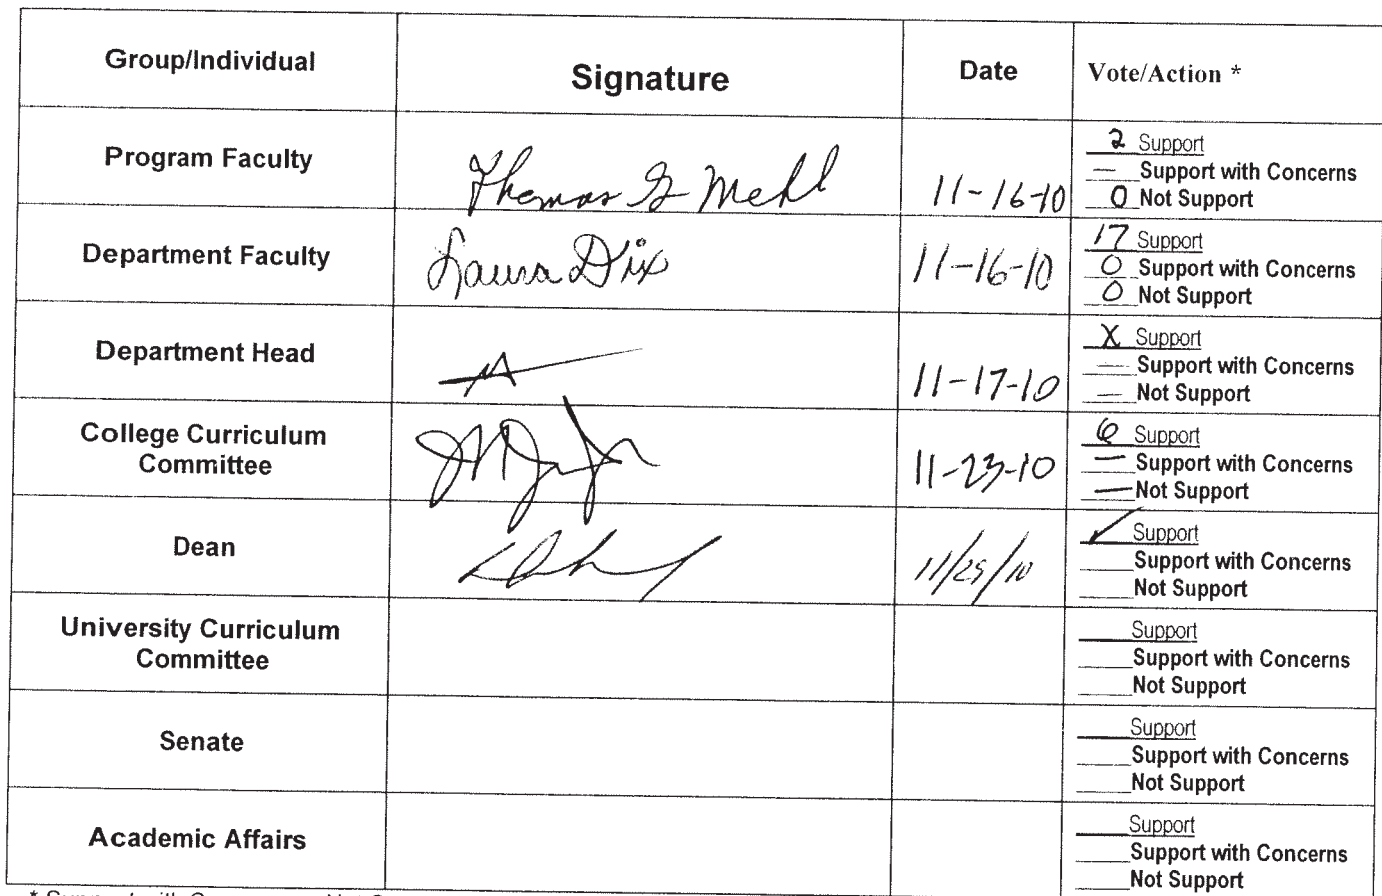 Group/Individual Signature Date Vote/Action *
Program Faculty Thomas G Mehl 11-16-10
2 Support
— Support with Concerns
0 Not Support
Department Faculty Laura Dix 11-16-10
17 Support
0 Support with Concerns
0 Not Support
Department Head 11-17-10
X Support
— Support with Concerns
— Not Support
College Curriculum
Committee
11-23-10
6 Support
— Support with Concerns
— Not Support
Dean
✓ Support
Support with Concerns
Not Support
University Curriculum
Committee
Support
Support with Concerns
Not Support
Senate
Support
Support with Concerns
Not Support
Academic Affairs
Support
Support with Concerns
Not Support